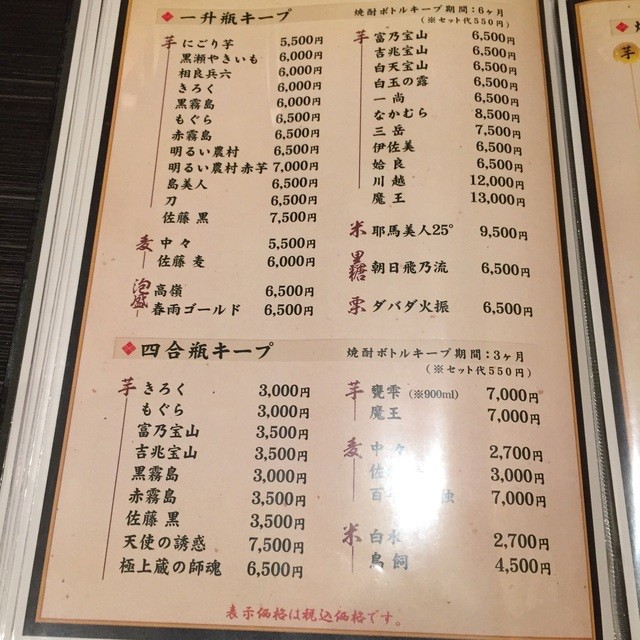 一升瓶キープ
焼酎ボトルキープ期間：6ヶ月
（※セット代550円）
芋 にごり芋 5,500円
黒瀬やきいも 6,000円
相良兵六 6,000円
きろく 6,000円
黒霧島 6,000円
もぐら 6,500円
赤霧島 6,500円
明るい農村 6,500円
明るい農村 赤芋 7,000円
島美人 6,500円
刀 6,500円
佐藤 黒 7,500円
麦 中々 5,500円
佐藤 麦 6,000円
泡盛 高嶺 6,500円
春雨ゴールド 6,500円
芋 富乃宝山 6,500円
吉兆宝山 6,500円
白天宝山 6,500円
白玉の露 6,500円
一尚 6,500円
なかむら 8,500円
三岳 7,500円
伊佐美 6,500円
姶良 6,500円
川越 12,000円
魔王 13,000円
米 耶馬美人25° 9,500円
黒糖 朝日飛乃流 6,500円
栗 ダバダ火振 6,500円
四合瓶キープ
焼酎ボトルキープ期間：3ヶ月
（※セット代550円）
芋 きろく 3,000円
もぐら 3,000円
富乃宝山 3,500円
吉兆宝山 3,500円
黒霧島 3,000円
赤霧島 3,500円
佐藤 黒 3,500円
天使の誘惑 7,500円
極上蔵の師魂 6,500円
芋 甕雫（※900ml） 7,000円
魔王 7,000円
麦 中々 2,700円
佐 3,000円
百 独 7,000円
米 白水 2,700円
鳥飼 4,500円
表示価格は税込価格です。
芋